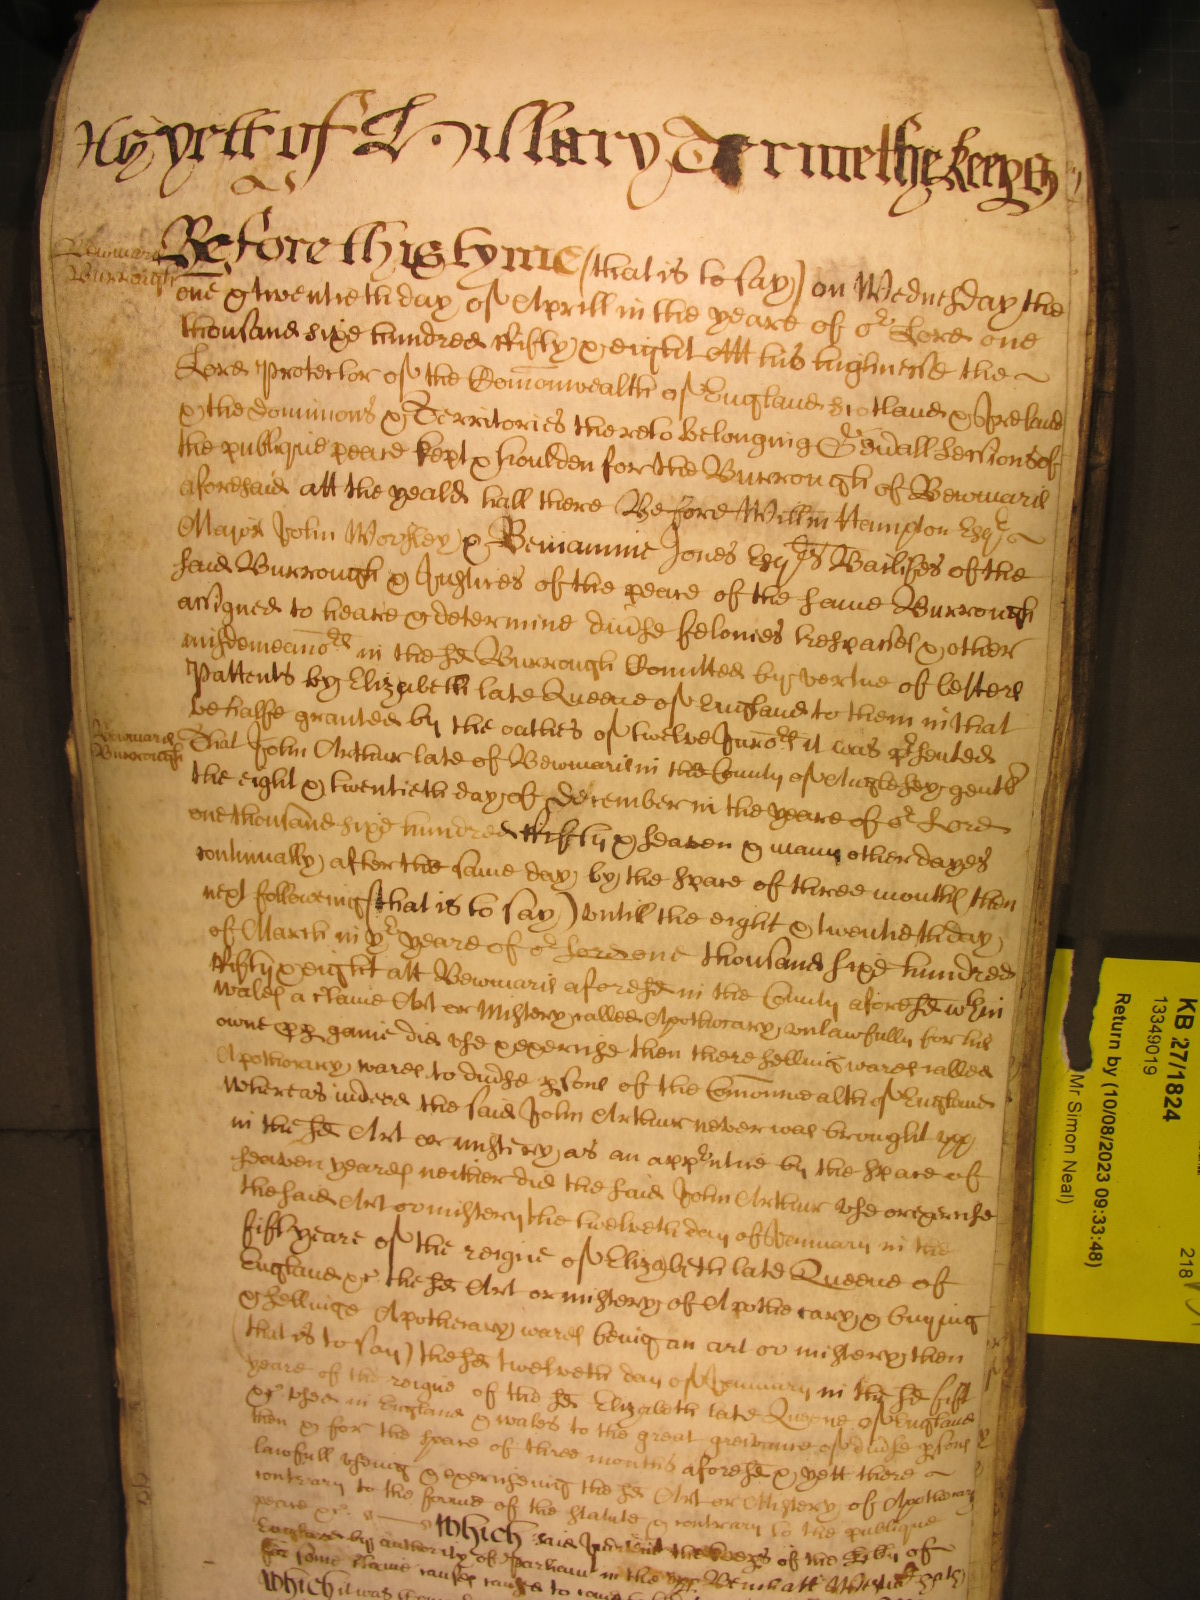 As yett of Hillary Terme the keeps
Bewmaris
Burrough
Before this tyme (that is to say) on Wednesday the
one & twentieth day of Aprill in the yeare of or Lord one
thousand sixe hundred fifty & eight Att his highnesse the
Lord Protector of the Comonwealth of England Scotland & Ireland
& the dominions & Territories thereto belonging Genall Sessions of
the publique peace kept & houlden for the Burrough of Bewmaris
aforesaid att the yeald hall there Before Willm Hampton Esqr
Major John Worsley & Beniamine Jones Esqrs Bailiffes of the
said Burrough & Justices of the peace of the same Burrough
assigned to heare & determine divse felonies trespasses & other
misdemeanors in the sd Burrough Comitted by vertue of letters
Pattents by Elizabeth late Queene of England to them in that
behalfe granted by the oathes of twelve Jurors it was prsented
Bewmaris
Burrough
That John Arthur late of Bewmaris in the County of Anglesey gentl
the eight & twentieth day of December in the yeare of or Lord
one thousand sixe hundred fifty & seaven & many other dayes
continually after the same day by the space of three months then
next following (that is to say) untill the eight & twentieth day
of March in yr yeare of or Lord one thousand sixe hundred
fifty & eight att Bewmaris aforesd in the County aforesd wthin
Wales a certaine Art or Mistery called Apothecary unlawfully for his
owne gaine did use & exercise then there selling wares called
Apothecary wares to divse psons of the Comonwealth of England
Whereas indeed the said John Arthur never was brought upp
in the sd Art or mistery as an apprntice by the space of
seaven yeares neither did the said John Arthur use or exercise
the said Art or mistery the twelveth day of January in the
fift yeare of the reigne of Elizabeth late Queene of
England &c the sd Art or mistery of Apothecary & buying
& sellinge Apothecary wares being an art or mistery then
(that is to say) the sd twelveth day of January in the sd fift
yeare of the reigne of the sd Elizabeth late Queene of England
&c used in England & Wales to the great greivance of divse psons
then & for the space of three months aforesd & yett there
lawfull useing & exerciseing the sd Art or Mistery of Apothecary
contrary to the forme of the statute & contrary to the publique
peace &c. Which said the keeps of the libty of
England by authority of Parliam in the upp Bench att
for some certaine causes caused to
Which it was
KB 27/1824
13349019
218
Return by (10/08/2023 09:33:48)
Mr Simon Neal)